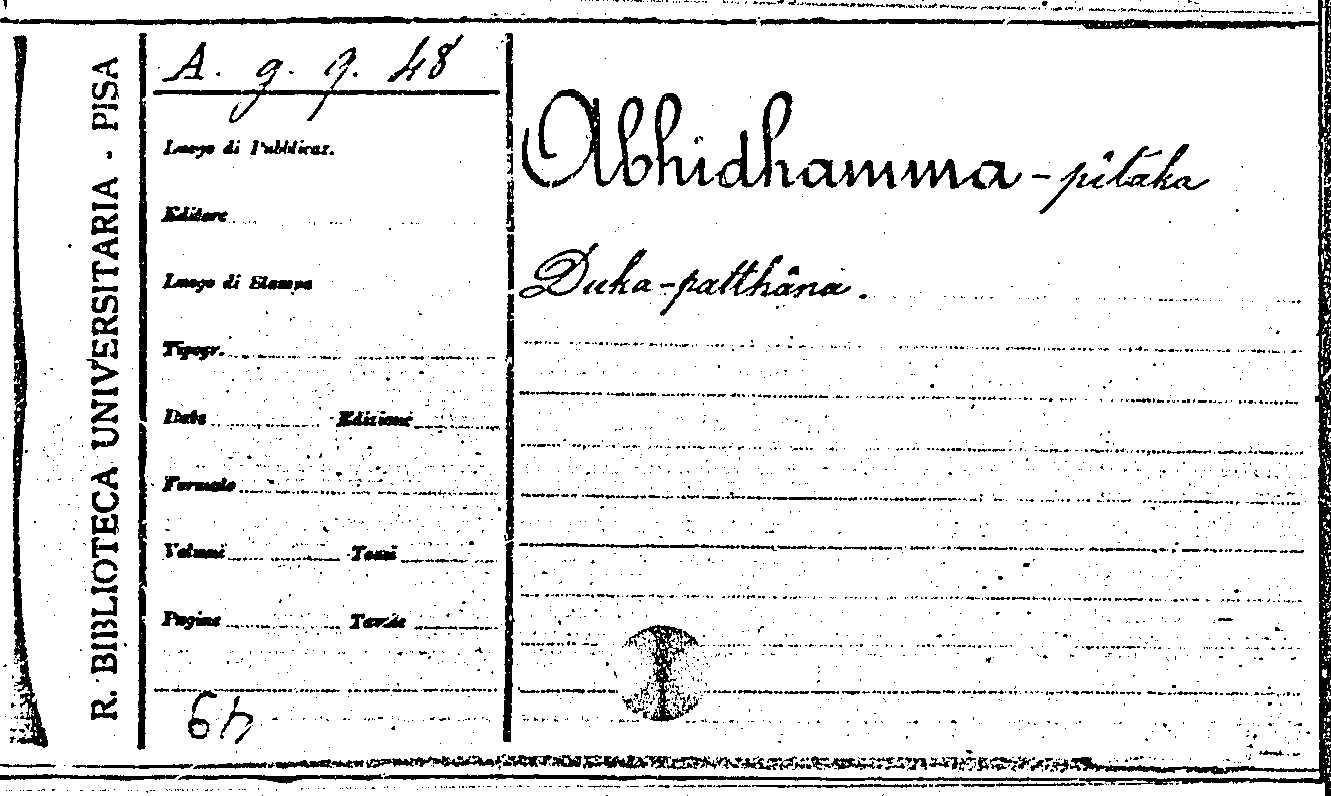 R. BIBLIOTECA UNIVERSITARIA - PISA
A. g. 9. 48
Luogo di Pubblicaz.
Editore
Luogo di Stampa
Tipogr.
Data Edizione
Formato
Volumi Tomi
Pagine Tavole
Abhidhamma-pitaka
Duka-patthâna.